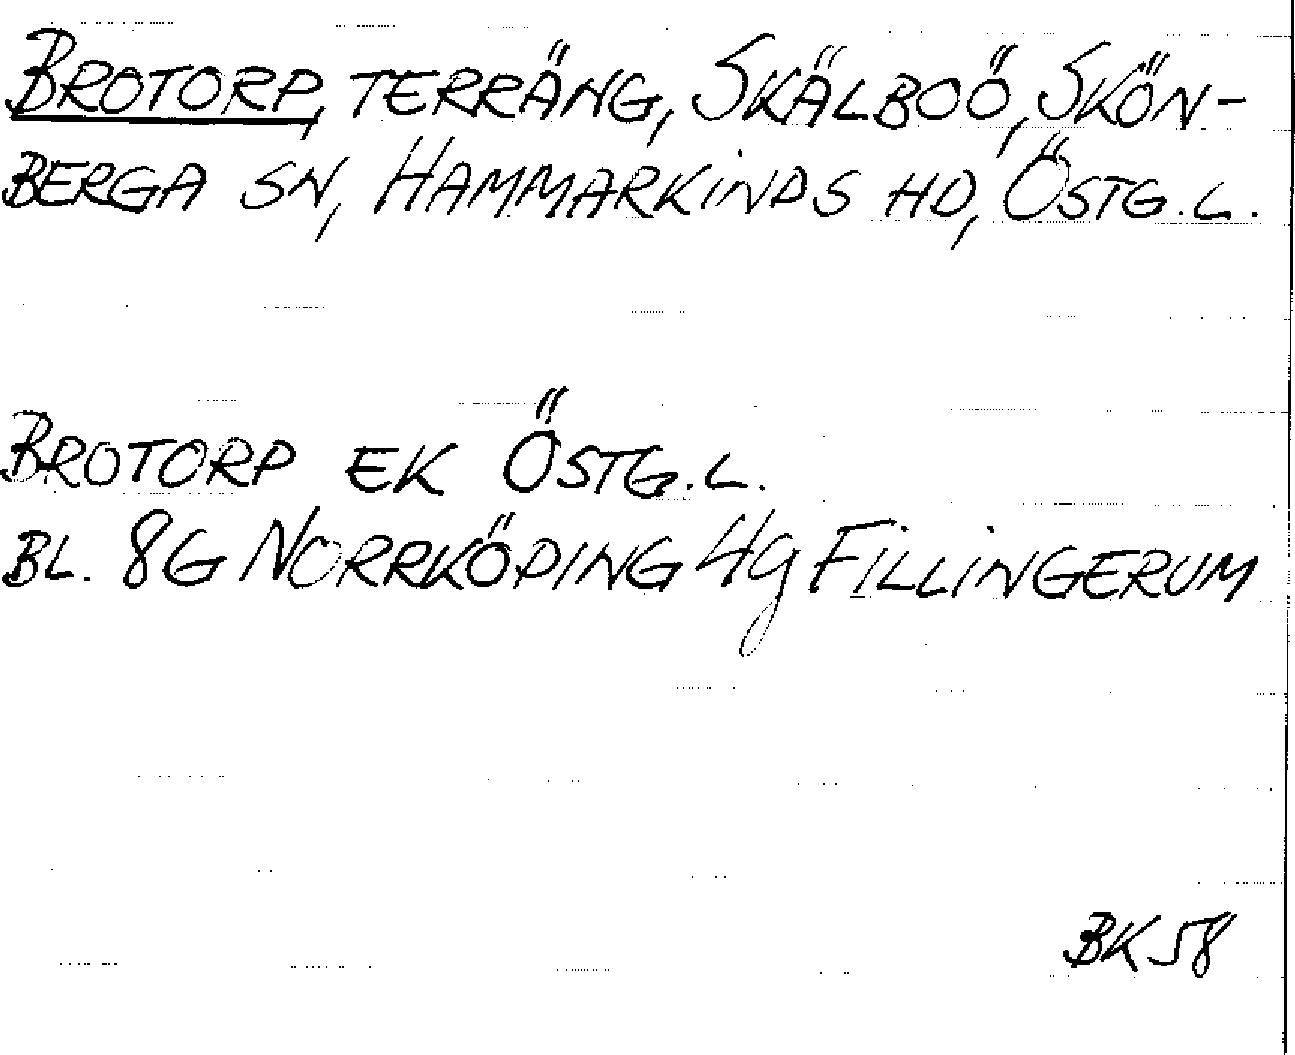 BROTORP, TERRÄNG, SKÄLBOÖ, SKÖN-
BERGA SN, HAMMARKINDS HD, ÖSTG.L.
BROTORP EK ÖSTG.L.
BL. 8G NORRKÖPING 4g FILLINGERUM
BK 58